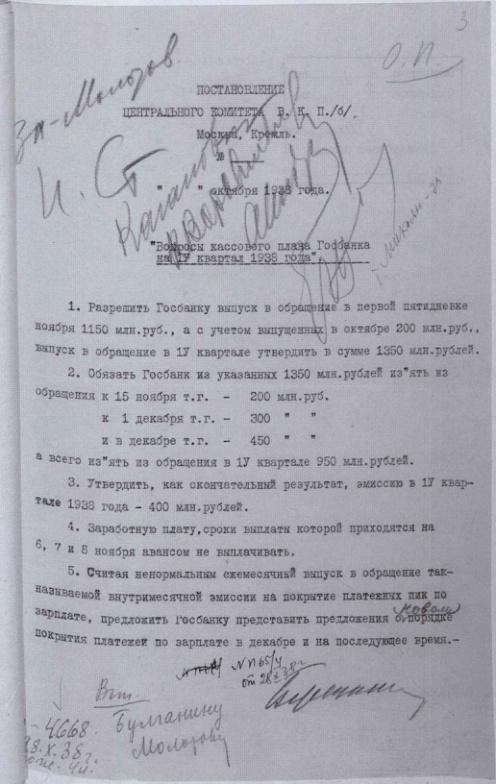 3
О.П.
За - Молотов
ПОСТАНОВЛЕНИЕ
ЦЕНТРАЛЬНОГО КОМИТЕТА В. К. П./б/.
Москва, Кремль.
№
И. Ст
Каганович
К Ворошилов
" " октября 1938 года.
т. Микоян - за
"Вопросы кассового плана Госбанка
на 1У квартал 1938 года".
1. Разрешить Госбанку выпуск в обращение в первой пятидневке
ноября 1150 млн.руб., а с учетом выпущенных в октябре 200 млн.руб.,
выпуск в обращение в 1У квартале утвердить в сумме 1350 млн.рублей.
2. Обязать Госбанк из указанных 1350 млн.рублей из"ять из
обращения к 15 ноября т.г. - 200 млн.руб.
к 1 декабря т.г. - 300 " "
и в декабре т.г. - 450 " "
а всего из"ять из обращения в 1У квартале 950 млн.рублей.
3. Утвердить, как окончательный результат, эмиссию в 1У квар-
тале 1938 года - 400 млн.рублей.
4. Заработную плату,сроки выплаты которой приходятся на
6, 7 и 8 ноября авансом не выплачивать.
5. Считая ненормальным ежемесячный выпуск в обращение так-
называемой внутримесячной эмиссии на покрытие платежных пик по
зарплате, предложить Госбанку представить предложения о новом порядке
покрытия платежей по зарплате в декабре и на последующее время.-
N П65/4
от 28 X 38 г
Вт.
Булганину
Молотову
- 4668
28.X.38 г.